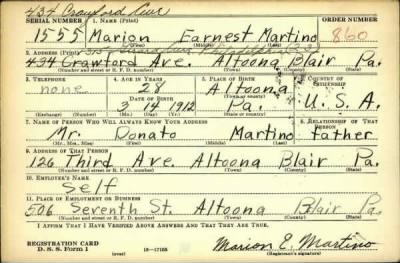 434 Crawford Ave
SERIAL NUMBER 1. NAME (Print) ORDER NUMBER
1555 Marion Earnest Martino 860
2. ADDRESS (Print) Philadelphia
434 Crawford Ave. Altoona Blair Pa.
(Number and street or R. F. D. number) (Town) (County) (State)
3. TELEPHONE 4. AGE IN YEARS 5. PLACE OF BIRTH 6. COUNTRY OF CITIZENSHIP
none 28 Altoona
DATE OF BIRTH (Town or county)
3 14 1912 Pa. U. S. A.
(Exchange) (Number) (Mo.) (Day) (Yr.) (State or country)
7. NAME OF PERSON WHO WILL ALWAYS KNOW YOUR ADDRESS 8. RELATIONSHIP OF THAT PERSON
Mr. Donato Martino father
(Mr., Mrs., Miss) (First) (Middle) (Last)
9. ADDRESS OF THAT PERSON
126 Third Ave. Altoona Blair Pa.
(Number and street or R. F. D. number) (Town) (County) (State)
10. EMPLOYER'S NAME
Self
11. PLACE OF EMPLOYMENT OR BUSINESS
506 Seventh St. Altoona Blair Pa.
(Number and street or R. F. D. number) (Town) (County) (State)
I AFFIRM THAT I HAVE VERIFIED ABOVE ANSWERS AND THAT THEY ARE TRUE.
REGISTRATION CARD
D. S. S. Form 1 (over) 16—17105 Marion E. Martino
(Registrant's signature)